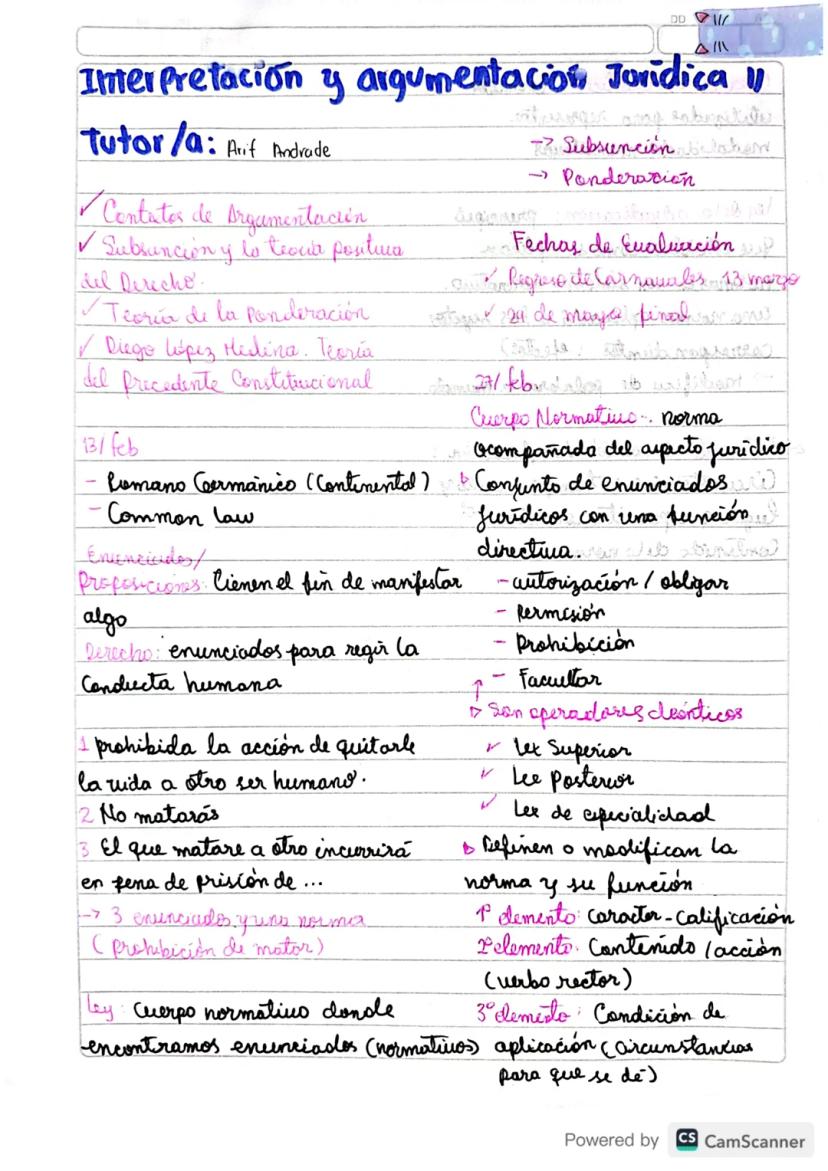 Interpretación y argumentación Jurídica II
Tutor/a: Arif Andrade
→ Subsunción
→ Ponderación
✓ Contextos de Argumentación
✓ Subsunción y la teoría positiva
del Derecho.
✓ Teoría de la Ponderación
✓ Diego López Medina. Teoría
del Precedente Constitucional
13/feb
- Romano Germánico (Continental)
- Common law
Enunciados/
Proposiciones: Tienen el fin de manifestar
algo
Derecho: enunciados para regir la
Conducta humana
1 prohibida la acción de quitarle
la vida a otro ser humano.
2 No matarás
3 El que matare a otro incurrirá
en pena de prisión de ...
→ 3 enunciados y una norma
(prohibición de matar)
Ley: Cuerpo normativo donde
encontramos enunciados (normativos)
Fechas de Evaluación
✓ Regreso de Carnavales 13 marzo
✓ 29 de mayo final
27/feb
Cuerpo Normativo. norma
acompañada del aspecto jurídico
Conjunto de enunciados
jurídicos con una función
directiva.
- autorización / obligar
- Permisión
- Prohibición
- Facultar
Son operadores deónticos
✓ Lex Superior
✓ Lex Posterior
✓ Lex de especialidad
Definen o modifican la
norma y su función
1º elemento: Caracter - Calificación
2º elemento: Contenido / acción
(verbo rector)
3º elemento: Condición de
aplicación (circunstancias
para que se dé)
Powered by CS CamScanner